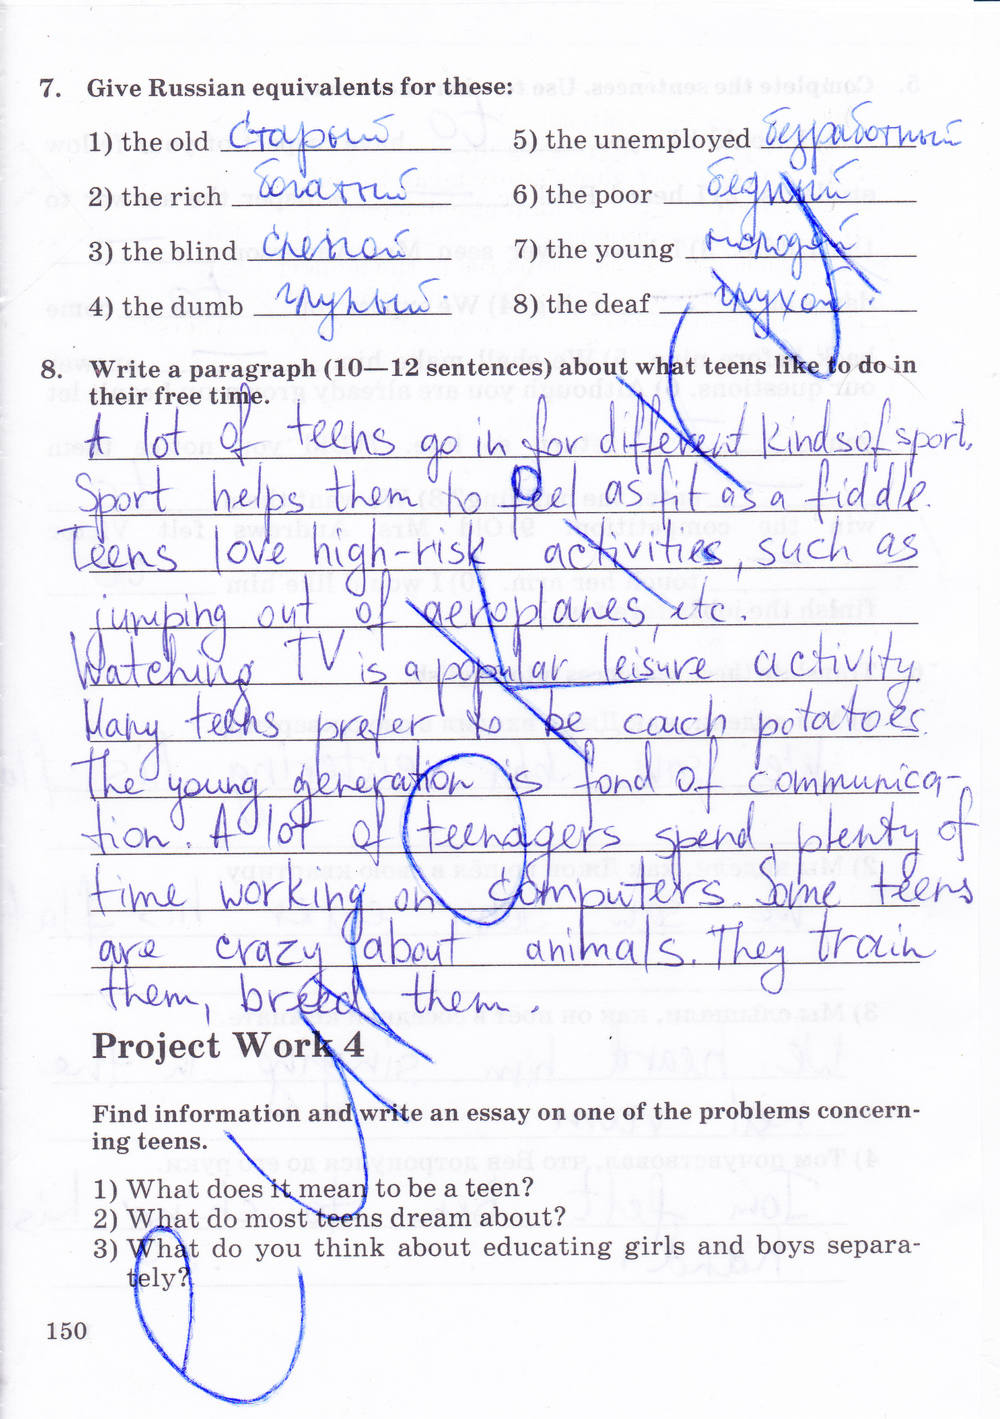 7. Give Russian equivalents for these:
1) the old старый 5) the unemployed безработный
2) the rich богатый 6) the poor бедный
3) the blind слепой 7) the young молодой
4) the dumb глупый. 8) the deaf глухой
8. Write a paragraph (10—12 sentences) about what teens like to do in
their free time.
A lot of teens go in for different kinds of sport.
Sport helps them to feel as fit as a fiddle.
Teens love high-risk activities, such as
jumping out of aeroplanes, etc.
Watching TV is a popular leisure activity
Many teens prefer to be couch potatoes.
The young generation is fond of communica-
tion. A lot of teenagers spend plenty of
time working on computers. Some teens
are crazy about animals. They train
them, breed them.
Project Work 4
Find information and write an essay on one of the problems concern-
ing teens.
1) What does it mean to be a teen?
2) What do most teens dream about?
3) What do you think about educating girls and boys separa-
tely?
150